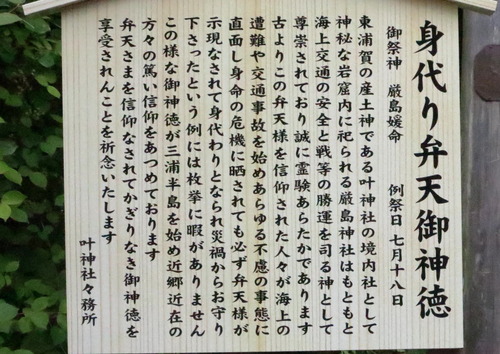 身代り弁天御神徳
御祭神　厳島媛命　例祭日　七月十八日
東浦賀の産土神である叶神社の境内社として
神秘な岩窟内に祀られる厳島神社はもともと
海上交通の安全と戦等の勝運を司る神として
尊崇されており誠に霊験あらたかであります
古よりこの弁天様を信仰された人々が海上の
遭難や交通事故を始めあらゆる不慮の事態に
直面し身命の危機に晒されても必ず弁天様が
示現なされて身代わりとなられ災禍からお守り
下さったという例には枚挙に暇がありません
この様な御神徳が三浦半島を始め近郷近在の
方々の篤い信仰をあつめております
弁天さまを信仰なされてかぎりなき御神徳を
享受されんことを祈念いたします
叶神社々務所